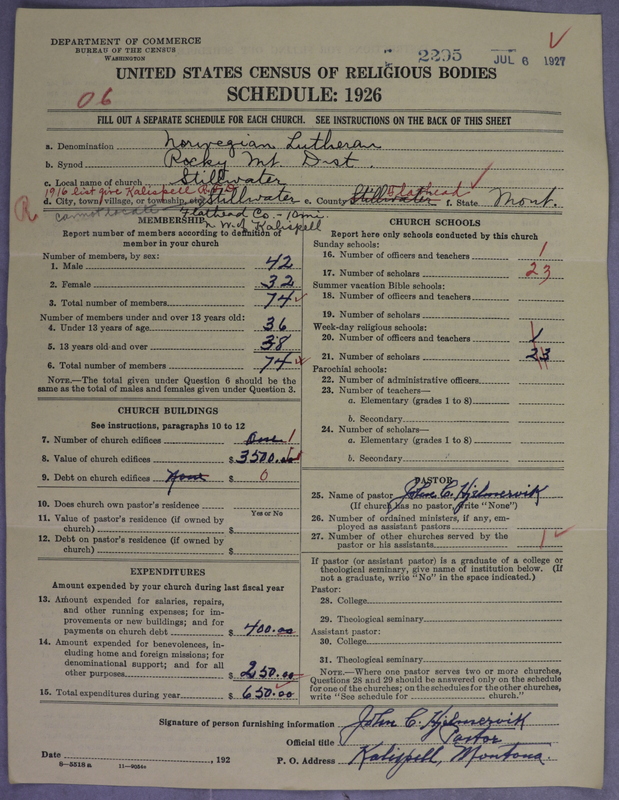 DEPARTMENT OF COMMERCE
BUREAU OF THE CENSUS
WASHINGTON
2295 JUL 6 1927
UNITED STATES CENSUS OF RELIGIOUS BODIES
SCHEDULE: 1926
06
FILL OUT A SEPARATE SCHEDULE FOR EACH CHURCH. SEE INSTRUCTIONS ON THE BACK OF THIS SHEET
a. Denomination Norwegian Lutheran
b. Synod Rocky Mt. Dist.
c. Local name of church Stillwater
1916 list give Kalispell
d. City, town, village, or township, etc. Stillwater e. County Stillwater Flathead f. State Mont.
R cannot locate Flathead Co. - 10 mi.
n W. of Kalispell
MEMBERSHIP
Report number of members according to definition of
member in your church
Number of members, by sex:
1. Male 42
2. Female 32
3. Total number of members 74
Number of members under and over 13 years old:
4. Under 13 years of age 36
5. 13 years old and over 38
6. Total number of members 74
NOTE.—The total given under Question 6 should be
same as the total of males and females given under Question 3.
CHURCH BUILDINGS
See instructions, paragraphs 10 to 12
7. Number of church edifices One 1
8. Value of church edifices $ 3500.00
9. Debt on church edifices None $ 0
Yes or No
10. Does church own pastor's residence
11. Value of pastor's residence (if owned by
church) $
12. Debt on pastor's residence (if owned by
church) $
EXPENDITURES
Amount expended by your church during last fiscal year
13. Amount expended for salaries, repairs,
and other running expenses; for im-
provements or new buildings; and for
payments on church debt $ 400.00
14. Amount expended for benevolences, in-
cluding home and foreign missions; for
denominational support; and for all
other purposes $ 250.00
15. Total expenditures during year $ 650.00
CHURCH SCHOOLS
Report here only schools conducted by this church
Sunday schools:
16. Number of officers and teachers 1
17. Number of scholars 23
Summer vacation Bible schools:
18. Number of officers and teachers
19. Number of scholars
Week-day religious schools:
20. Number of officers and teachers 1
21. Number of scholars 23
Parochial schools:
22. Number of administrative officers
23. Number of teachers—
a. Elementary (grades 1 to 8)
b. Secondary
24. Number of scholars—
a. Elementary (grades 1 to 8)
b. Secondary
PASTOR
25. Name of pastor John C. Hjelmervik
(If church has no pastor, write "None")
26. Number of ordained ministers, if any, em-
ployed as assistant pastors
27. Number of other churches served by the
pastor or his assistants 1
If pastor (or assistant pastor) is a graduate of a college or
theological seminary, give name of institution below. (If
not a graduate, write "No" in the space indicated.)
Pastor:
28. College
29. Theological seminary
Assistant pastor:
30. College
31. Theological seminary
NOTE.—Where one pastor serves two or more churches,
Questions 28 and 29 should be answered only on the schedule
for one of the churches; on the schedules for the other churches,
write "See schedule for church."
Signature of person furnishing information John C. Hjelmervik
Official title Pastor
Date , 192 P. O. Address Kalispell, Montana.
8—5518 a